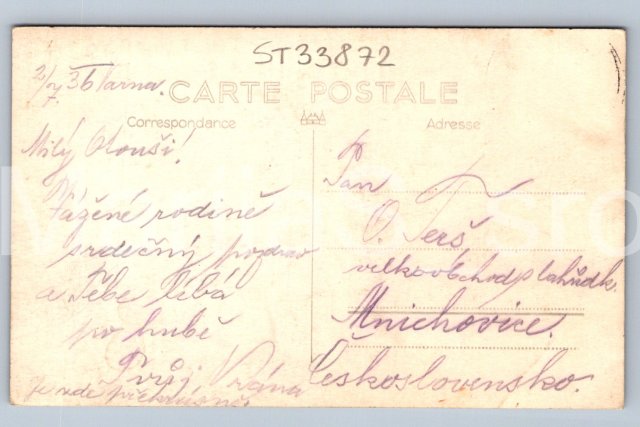 ST33872
2/7. 36 Varna.
CARTE POSTALE
Correspondance
Adresse
Milý Olouši!
Vážené rodině
srdečný pozdrav
a Tebe líbá
po hubě
Tvůj Vrána
Je zde překrásně.
Pan
O. Terš,
velkoobchod s lahůdk.
Mnichovice.
Československo.